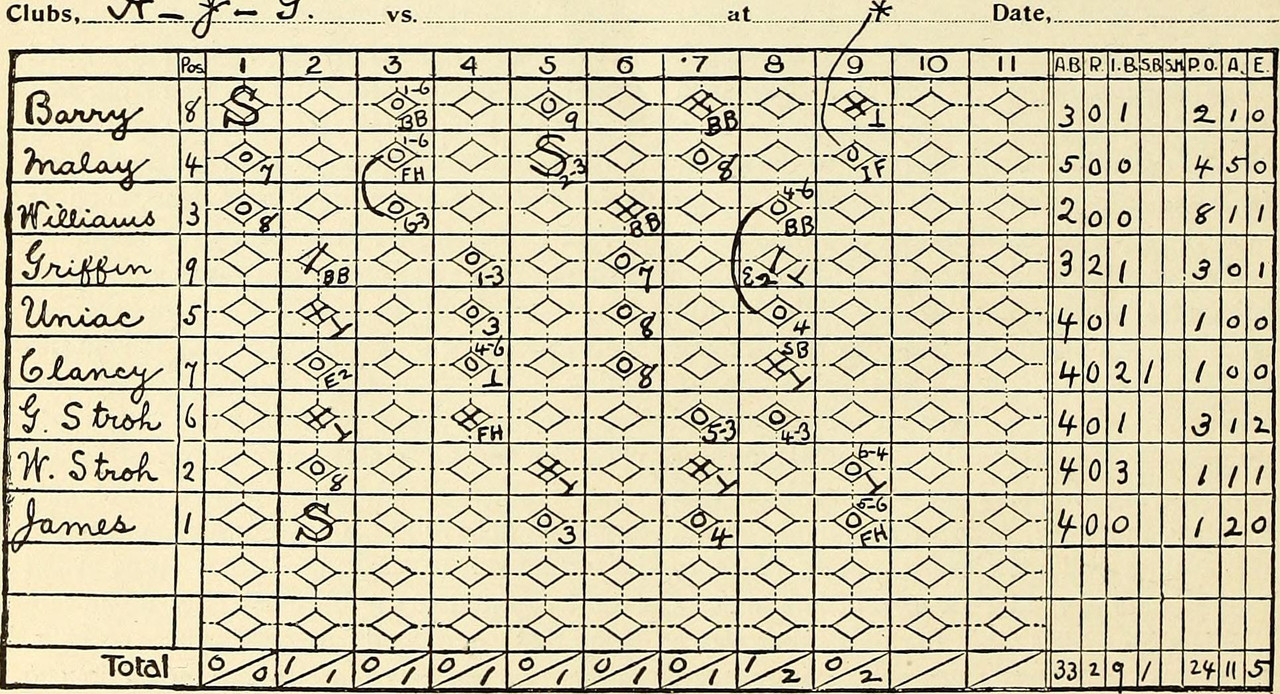 Clubs, A-J-G. vs. at * Date,
Pos. 1 2 3 4 5 6 7 8 9 10 11 A.B. R. 1.B. S.B. S.H. P.O. A. E.
Barry 8 S 1-6 BB 9 BB 1 3 0 1 2 1 0
Malay 4 7 1-6 FH S 2-3 8 IF 5 0 0 4 5 0
Williams 3 8 6-3 BB 4-6 BB 2 0 0 8 1 1
Griffin 9 BB 1-3 7 E2 3 2 1 3 0 1
Uniac 5 3 8 4 4 0 1 1 0 0
Clancy 7 E2 4-6 8 SB 4 0 2 1 1 0 0
G. Stroh 6 FH 5-3 4-3 4 0 1 3 1 2
W. Stroh 2 8 6-4 4 0 3 1 1 1
James 1 S 3 4 5-6 FH 4 0 0 1 2 0
Total 0/0 1/1 0/1 0/1 0/1 0/1 0/1 1/2 0/2 33 2 9 1 24 11 5